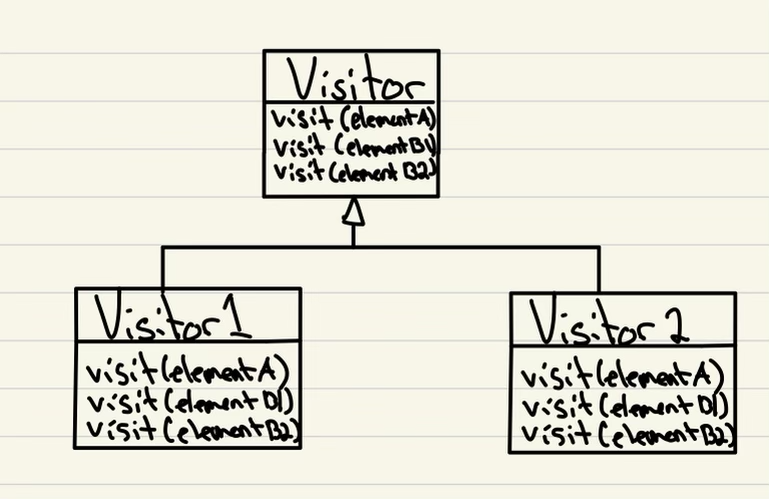 Visitor
visit (elementA)
visit (elementB1)
visit (element B2)
Visitor 1
visit (elementA)
visit (element D1)
visit (elementB2)
Visitor 2
visit (elementA)
visit (element D1)
visit (elementB2)